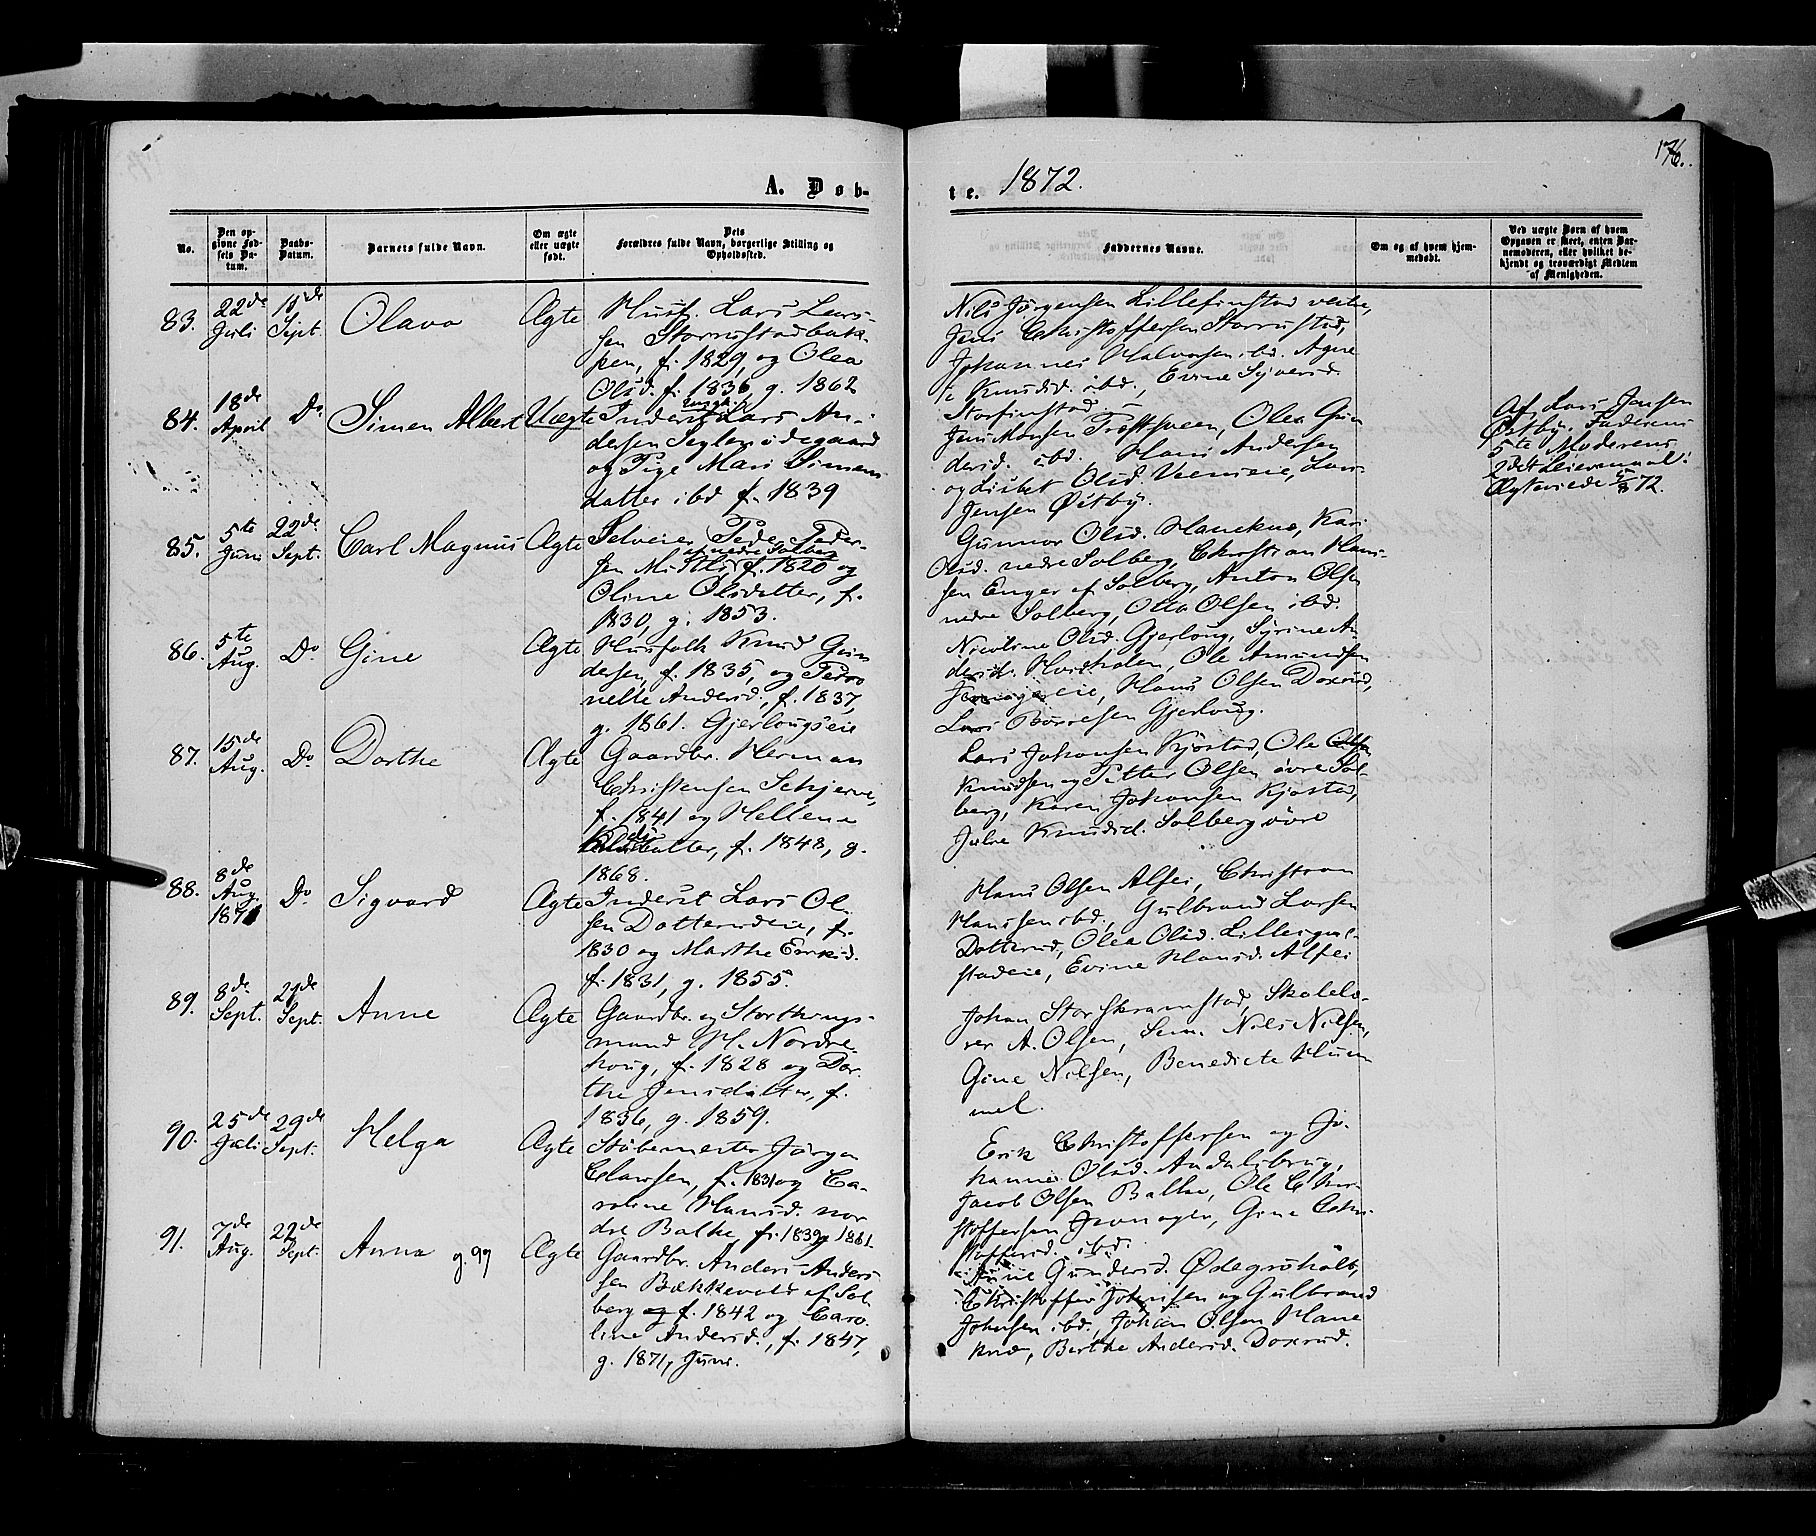 176.
A. Døb-
te. 1872.
No.
Den op-
givne Fød-
sels Da-
tum.
Daabs-
Datum.
Barnets fulde Navn.
Om ægte
eller uægte
født.
Dets
Forældres fulde Navn, borgerlige Stilling og
Opholdssted.
Faddernes Navne.
Om og af hvem hjem-
medøbt.
Ved uægte Børn af hvem
Opgaven er skeet, enten Bar-
nemoderen, eller hvilket be-
kjendt og troværdigt Medlem
af Menigheden.
83.
22de
Juli
Sept.
Olava
Ægte
Husf. Lars Lars-
sen Storrustadbak-
ken, f. 1829, og Olea
Olsd. f. 1836 g. 1862
Nils Jørgensen Lillefinstad vestre,
Jens Christoffersen Storrustad,
Johannes Halvorsen ibd. Agne
Knudsd. ibd., Evine Syversd.
Storfinstad
84.
18de
April
Do
Simen Albert
Uægte
Inderst Ungk. Lars An-
dersen Seglemødegaard
og Pige Mari Simens-
datter ibd f. 1839
Jens Monsen Trøftsveen, Olea Gun
dersd. ibd. Hans Andersen
og Lisbet Olsd. Lars
Jensen Østby.
Af Lars Jensen
Østby. Faderens
5te Moderens
2det Leiermaal.
Ægteviede 72.
85.
5te
Juni
22de
Sept.
Carl Magnus
Ægte
Selveier Peder Peder-
sen af nedre Solberg f. 1820 og
Oline Olsdatter, f.
1830, g. 1853.
Gunnor Olsd. Haneknæ, Kari
Olsd. nedre Solberg, Christian Han-
sen Enger af Solberg, Anton Olsen
nedre Solberg, Otto Olsen ibd.
86.
5te
Aug.
Do
Gine
Ægte
Husfolk Knud Gun
dersen, f. 1835, og Petro
nelle Andersd., f. 1837,
g. 1861. Gjerlougseie
Nicoline Olsd. Gjerloug, Syrine An
dersd. Hvidholen, Ole Amundsen
Hans Olsen Doxrud,
Lars Børresen Gjerloug.
87.
15de
Aug.
Do
Dorthe
Ægte
Gaardbr. Herman
Christensen Schjerve,
f. 1841 og Hellene
datter, f. 1848, g.
1868.
Lars Johansen Kjøstad, Ole Olsen
Knudsen og Petter Olsen øvre Sol-
berg, Karen Johansen Kjøstad,
Julie Knudsd. Solberg øvre
88.
8de
Aug.
1871
Do
Sigvard
Ægte
Inderst Lars Ol-
sen Dotterudeie, f.
1830 og Marthe Eriksd.
f. 1831, g. 1855.
Hans Olsen Alfei, Christian
Hanssen ibd., Gulbrand Larsen
Dotterud, Olea Olsd.
stadeie, Evine Hansd. Alfei
89.
8de
Sept.
29de
Sept.
Anne
Ægte
Gaardbr. og Storthings-
mand H. Nordre-
houg, f. 1828 og Dor-
the Jensdatter, f.
1836, g. 1859.
Johan Storskramstad, Skolelæ-
rer A. Olsen, Sem. Nils Nilsen,
Gine Nilsen, Benedicte Hum
mel.
90.
25de
Juli
29de
Sept.
Helga
Ægte
Støbemester Jørgen
Clausen, f. 1831 og Ca-
roline Hansd. nor
dre Balke, f. 1839 g. 1861
Erik Christoffersen og Jo-
hanne Olsd. Andalsbrug,
Jacob Olsen Balke, Ole Chri-
stoffersen Gine Chri-
stoffersd. ibd.
91.
7de
Aug.
22de
Sept.
Anna g. 99
Ægte
Gaardbr. Anders Anders-
sen Bækkevold af Sol
berg og f. 1842 og Caro-
line Andersd., f. 1847,
g. 1871, Juni.
Anne Gundersd. Ødegrøholt,
Christoffer Johnsen og Gulbrand
Johnsen ibd., Johan Olsen Hane
knæ, Berthe Andersd. Doxrud.